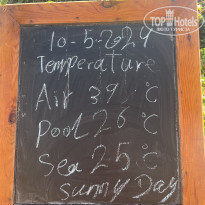 TOP Hotels
10-5-2024
Temperature
Air 39 °C
Pool 26 °C
Sea 25 °C
Sunny Day